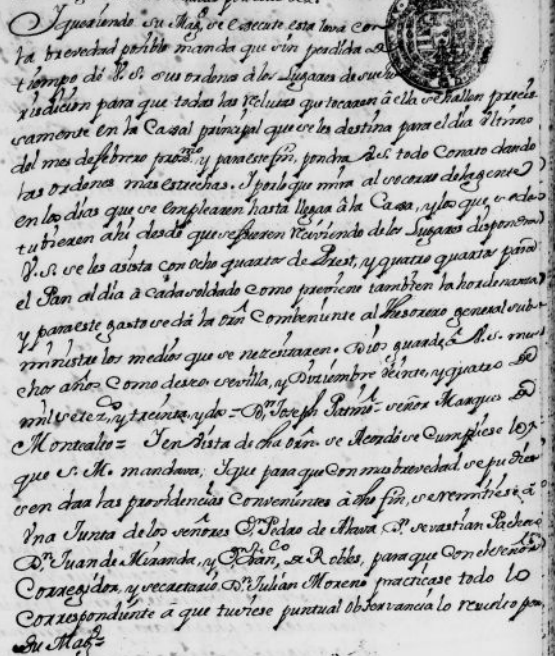 Y queriendo su Mag.d se execute esta leva con
la brevedad posible manda que sin perdida de
tiempo dé V. S. sus ordenes a los Lugares de su Ju
risdicion para que todas las reclutas que tocaren â ella se hallen precis
samente en la Casal principal que se les destina para el dia ultimo
del mes de febrero prox.mo y para este fin, pondra V.S. todo Conato dando
las ordenes mas estrechas. Y por lo que mira al socorro de la gente
en los dias que se emplearen hasta llegar â la Casa, y los que se de
tubieren ahi desde que se fueren reciviendo de los Lugares dispondra
V. S. se les asista con ocho quartos de Prest, y quatro quartos para
el Pan al dia â cada soldado como previene tambien la hordenanza
y para este gasto se dâ la orn Combeniente al Thesorero general sub
ministre los medios que se nezesitaren. Dios guarde â V. S. mu
chos años Como deseo sevilla, y Diziembre veinte, y quatro de
mil setez.os y treinta, y dos = Dn Joseph Patiño = señor Marques de
Montealto = Y en Vista de dha orn. se Acordó se Cumpliese lo
que S. M. mandava, Y que para que Con mas brevedad se pudies
sen dar las providencias Convenientes â dho fin, se remitiese â
Una Junta de los señores Dn Pedro de Alava Dn sevastian Pacheco
Dn Juan de Miranda, y Dn Fran.co de Robles, para que Con el señor
Corregidor, y secretario Dn Julian Moreno practicase todo lo
Correspondiente â que tuviese puntual Observancia lo resuelto por
Su Mag.d =